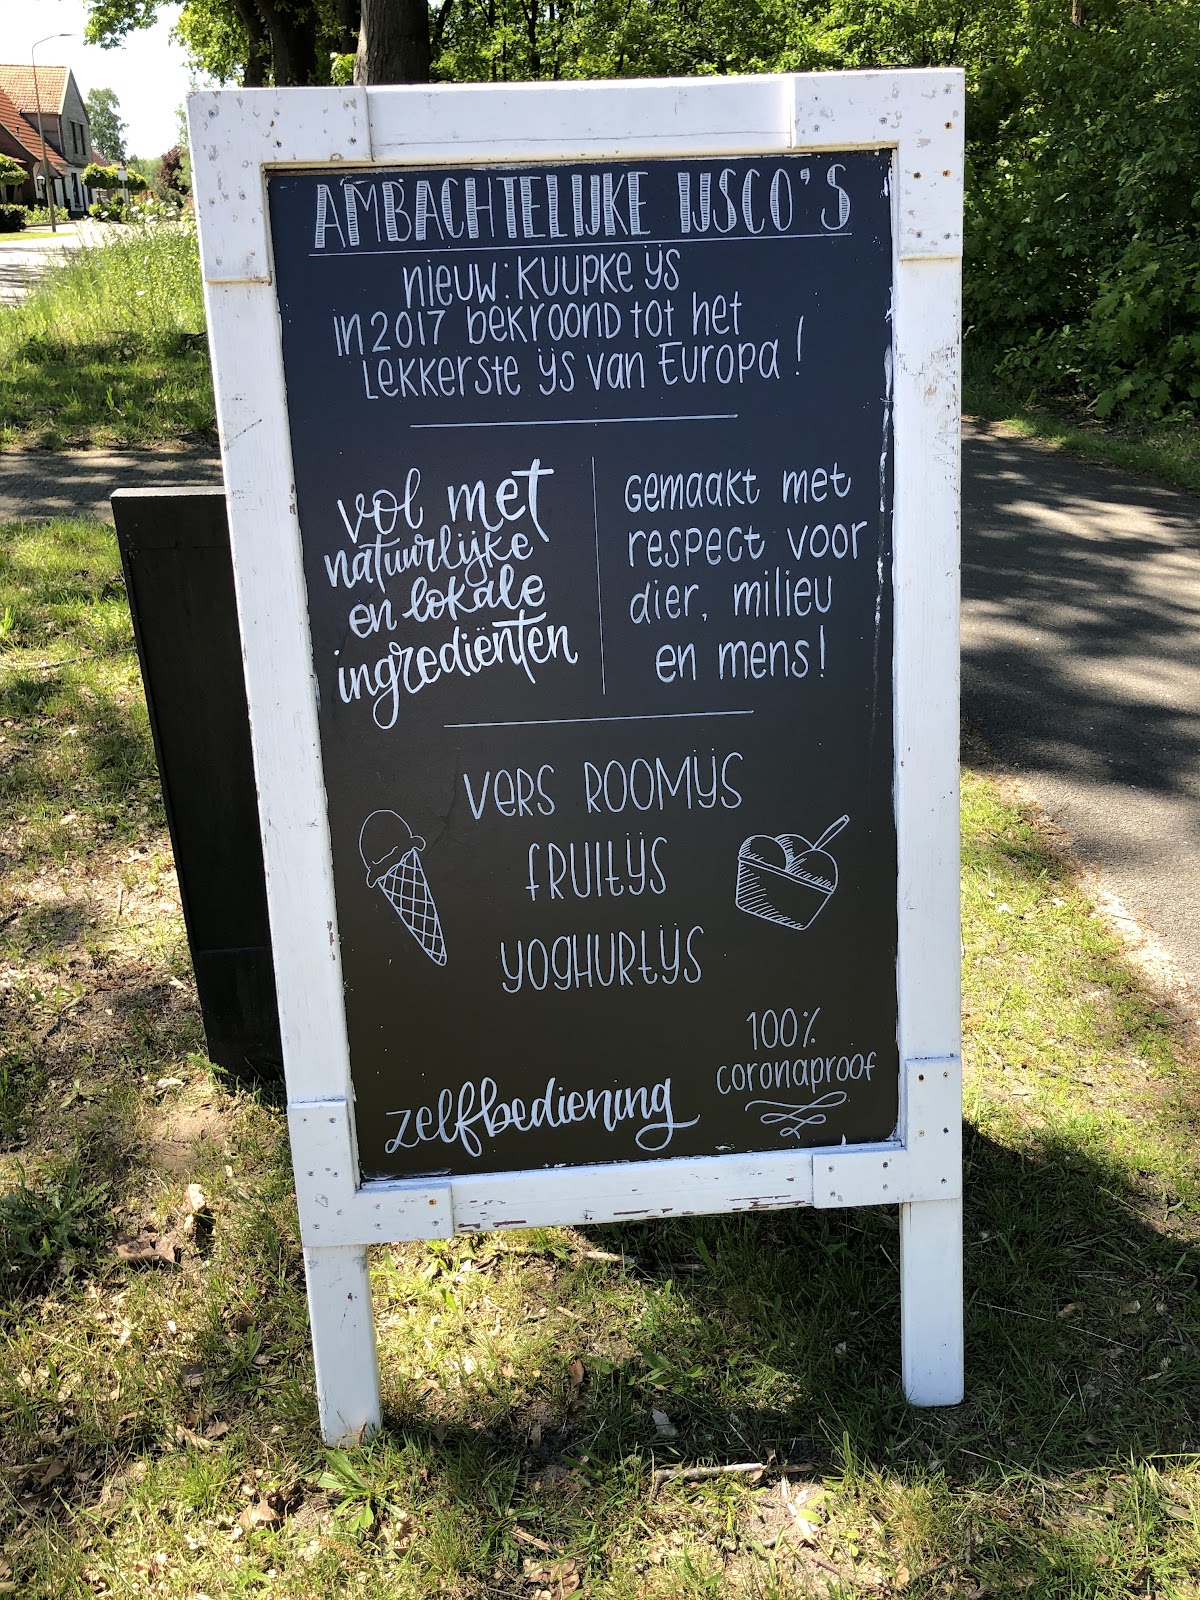 AMBACHTELIJKE IJSCO'S
nieuw: Kuupke ijs
in 2017 bekroond tot het
Lekkerste ijs van Europa!
vol met
natuurlijke
en lokale
ingrediënten
Gemaakt met
respect voor
dier, milieu
en mens!
VERS ROOMIJS
FRUITIJS
YOGHURTIJS
100%
coronaproof
zelfbediening